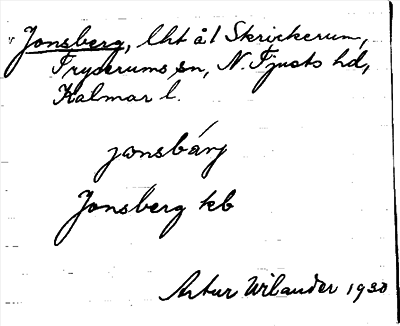 Jonsberg, lht å 1 Skrickerum,
Fryserums sn, N. Tjusts hd,
Kalmar l.
jonsbárj
Jonsberg kb
Artur Wilander 1930